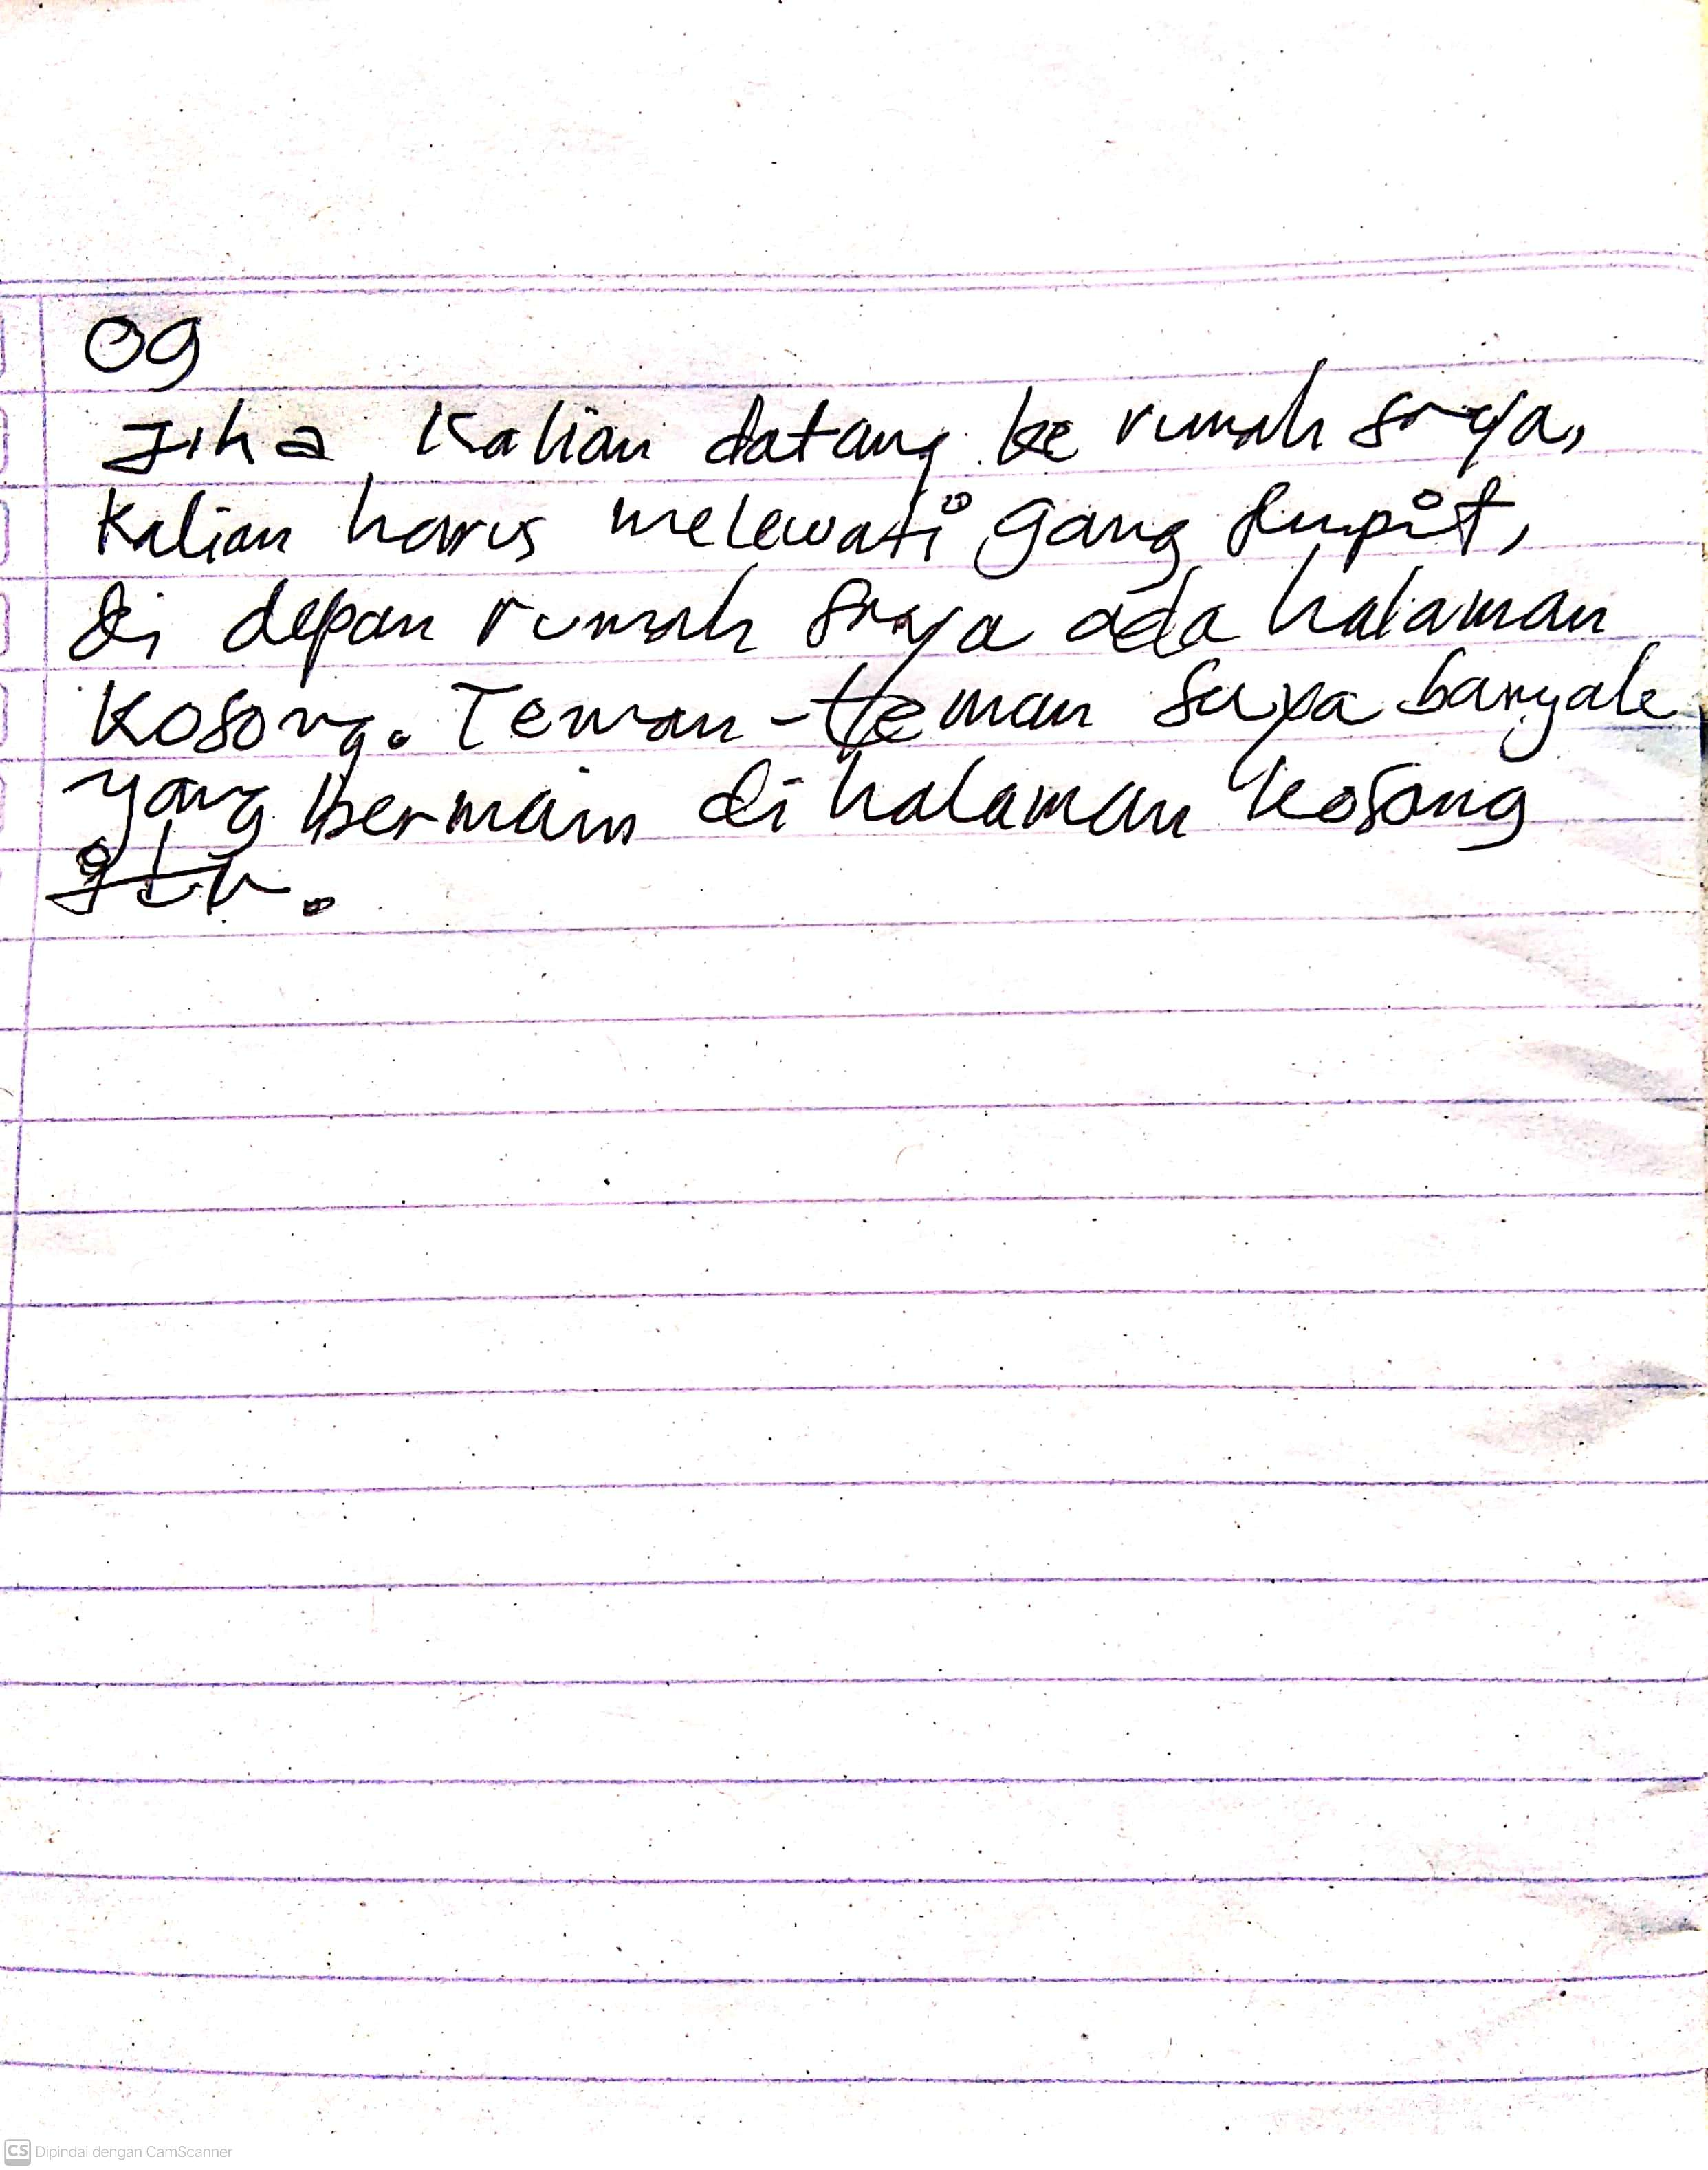 09
Jika Kalian datang ke rumah saya,
Kalian harus melewati gang sempit,
di depan rumah saya ada halaman
Kosong. Teman-teman saya banyak
yang bermain di halaman kosong
itu.
CS Dipindai dengan CamScanner